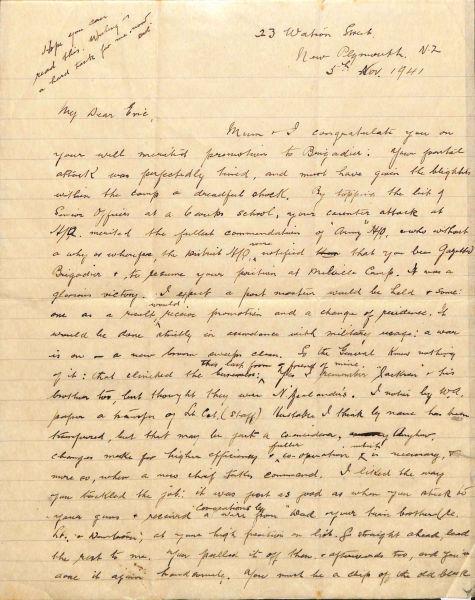 Hope you can
read this. Writing is
a hard task for me now
23 Watson Street,
New Plymouth. N.Z
5th Nov. 1941
My Dear Eric,
Mum & I congratulate you on
your well merited promotion to Brigadier. Your frontal
attack was perfectly timed, and must have given the blighters
within the camp a dreadful shock. By topping the list of
Senior Officers at a 6 weeks school, your counter attack at
H/Q. merited the fullest commendations of "Army" H/Q, who without
a why or wherefore, the District H/Q, were notified that you been Gazetted
Brigadier & to resume your position at Melville Camp. It was a
glorious victory. I expect a post mortem would be held & some
one as a result would receive promotion and a change of residence. It
would be done strictly in accordance with military usage: a war
is on — a new broom sweeps clean. So the General knows nothing
of it: that clinched the business: this last from a friend of mine. Yes I remember &  his
brother too, but thought they were N'Zealanders. I notice by W.A.
paper a transfer of Lt Col. (Staff) I think by name has been
transferred, but that may be just a coincidence. Anyhow
changes make for higher efficiency & fuller co-operation which is necessary, &
more so, when a new chief takes command. I liked the way
you tackled the job: it was just as good as when you stuck to
your guns & received a wire from "Dad & your twin brother
at your high position on list. Go straight ahead, lead
the rest to me. You pulled it off then & afterwards too, and you've
done it again handsomely. You must be a chip of the old block